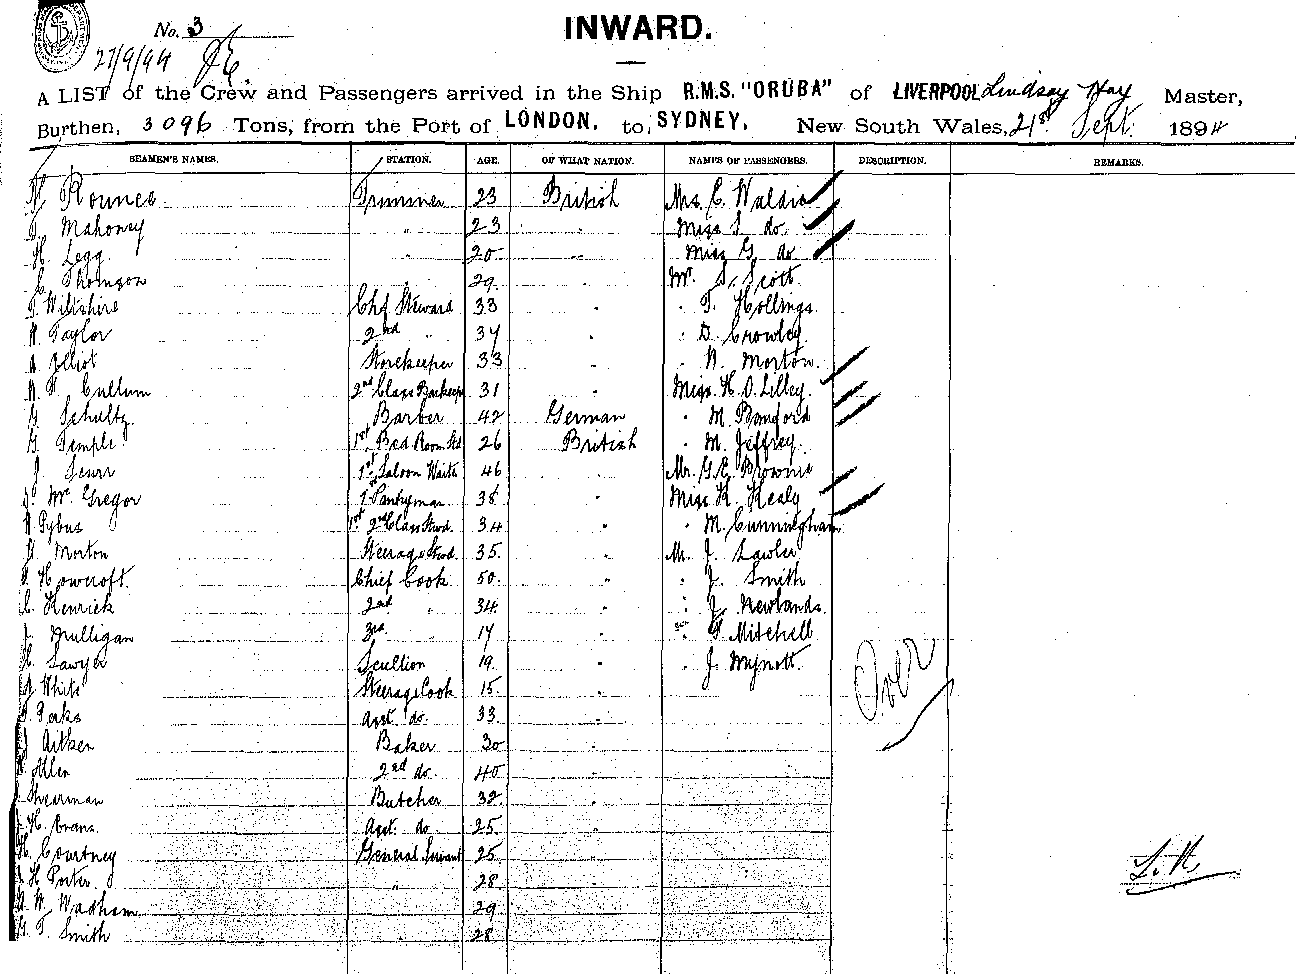 No. 3
INWARD.
27/9/94
A LIST of the Crew and Passengers arrived in the Ship R.M.S. "ORUBA" of LIVERPOOL Lindsay Hay Master,
Burthen, 3096 Tons, from the Port of LONDON. to SYDNEY. New South Wales, 21st Sept. 1894
SEAMEN'S NAMES. STATION. AGE. OF WHAT NATION. NAMES OF PASSENGERS. DESCRIPTION. REMARKS.
Rounce Trimmer 23 British Mrs. C. Waldie
T. Mahoney " 23 " Miss I do
H. Legg " 20 " Miss G. do
C. Thomson 29 " Mr. S. Scott
T. Wiltshire Chf Steward 33 " T. Hollings
Taylor 2nd " 34 " D. Crowley
33 " Storekeeper W. Morton
Cullum 2nd Class Barkeeper 31 " Miss H. O. Lilley
G. Schultz Barber 42 German " M. Bamford
G. Temple 1st Bed Room Std 26 British " M. Jeffrey
J. Scurr 1st Saloon Waiter 46 Mr. G. E. Browne
McGregor 1 Pantryman 38 " Miss K. Healy
Pybus 1st 2nd Class Stwd. 34 " M. Cunningham
Morton Steerage Stwd. 35 " Mr. J. Lawler
Howcroft Chief Cook 50 " J. Smith
C. Kenrick 2nd " 34 " J. Newlands
J. Mulligan 3rd 17 " Mitchell
H. Sawyer Scullion 19 " J. Mynott
White Steerage Cook 15 " Over
Parks Asst. do. 33 "
Aitken Baker 30 "
Allen 2nd do. 40 "
Shearman Butcher 32 "
H. Evans Asst. do 25 "
Courtney General Servant 25
H Porter " 28
W. Wadham 29
T. Smith 28